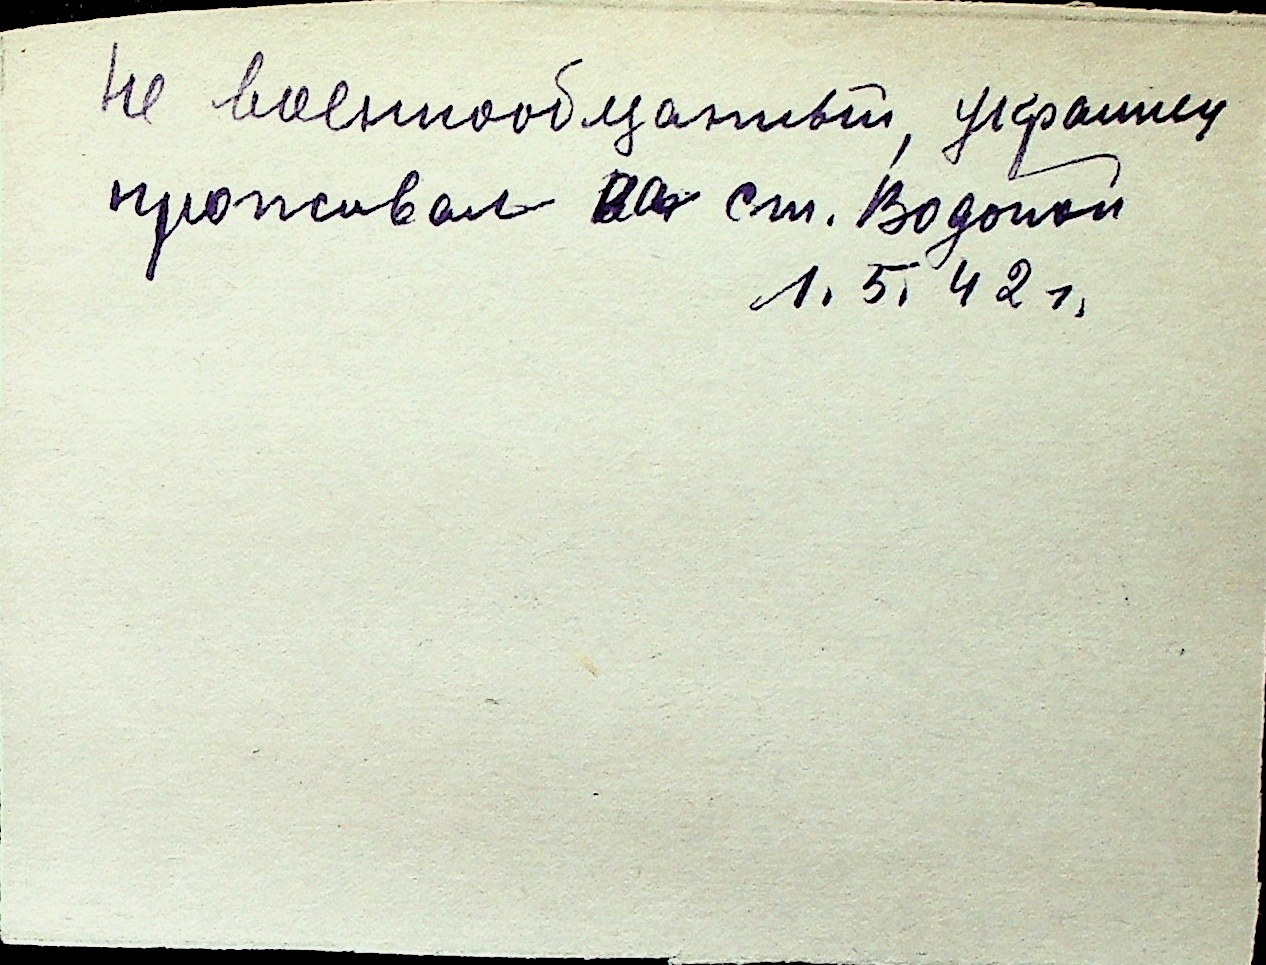 Не военнообязанный, украинец
проживал на ст. Водопой
1. 5. 42 г.